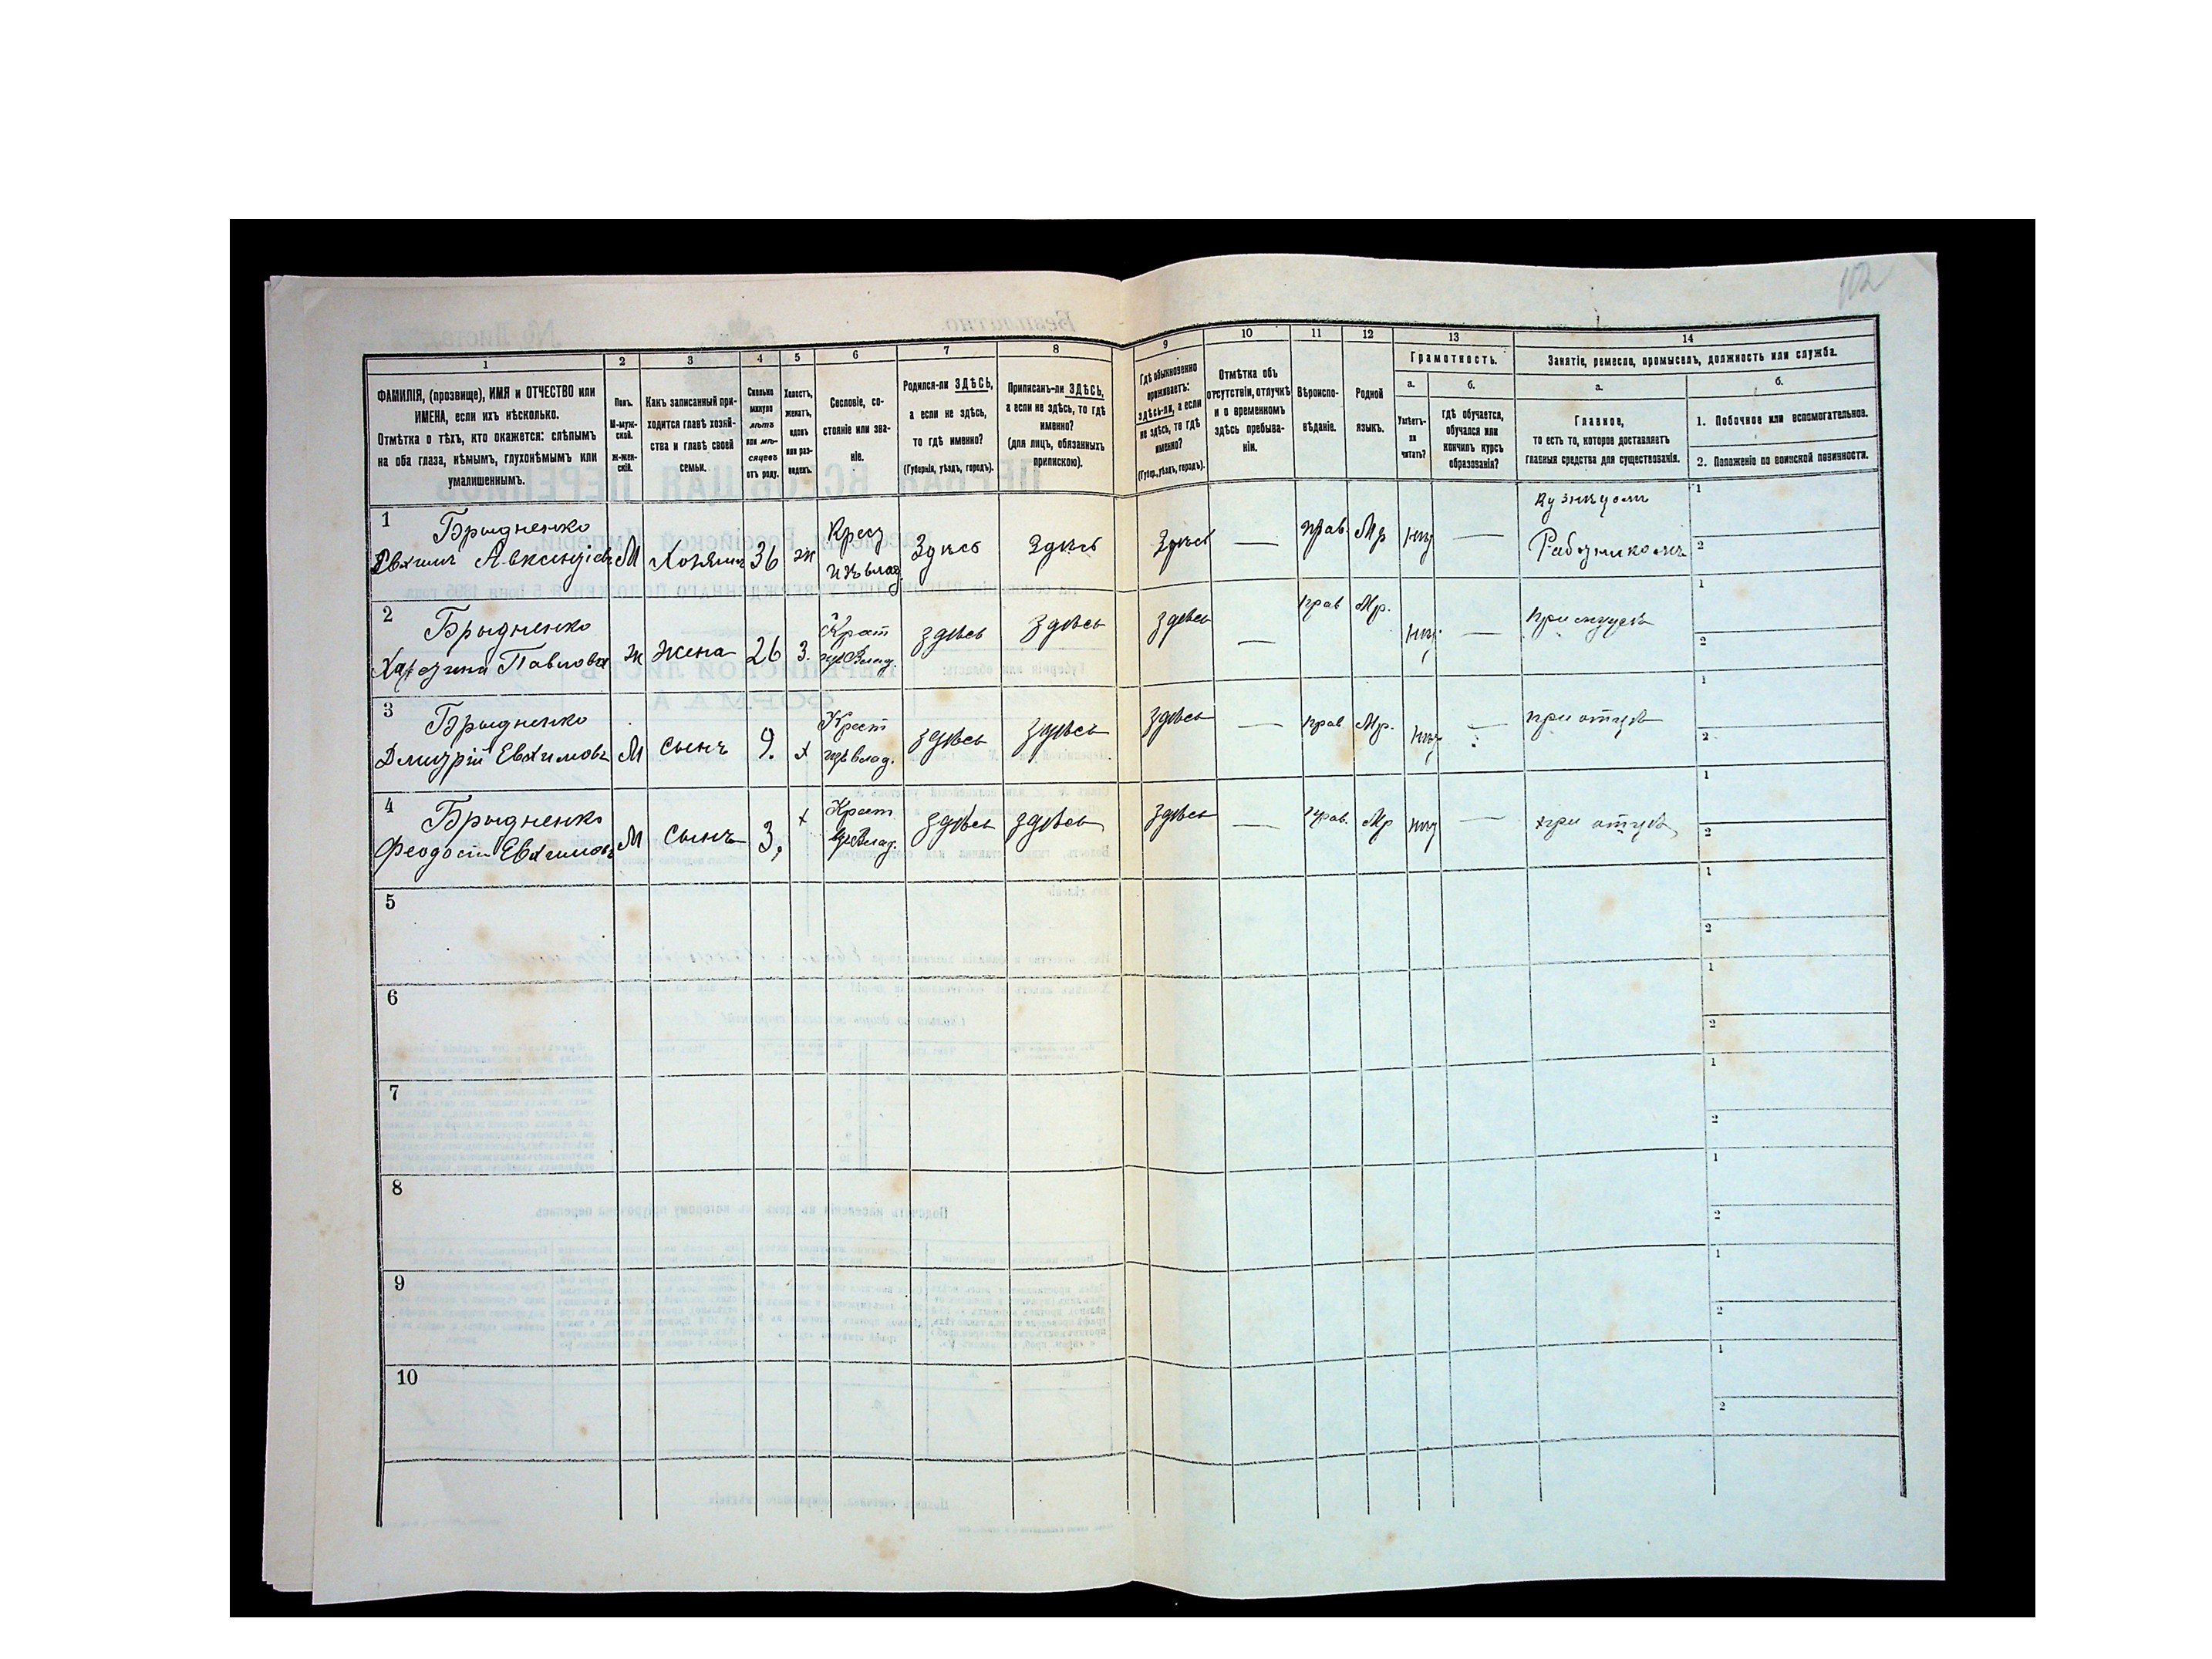 102
1
2
3
4
5
6
7
8
9
10
11
12
13
14
ФАМИЛІЯ, (прозвище), ИМЯ и ОТЧЕСТВО или
ИМЕНА, если ихъ нѣсколько.
Отмѣтка о тѣхъ, кто окажется: слѣпымъ
на оба глаза, нѣмымъ, глухонѣмымъ или
умалишеннымъ.
Полъ.
М-муж-
ской.
ж-жен-
скій.
Какъ записанный при-
ходится главѣ хозяй-
ства и главѣ своей
семьи.
Сколько
минуло
лѣтъ
или мѣ-
сяцевъ
отъ роду.
Холостъ,
женатъ,
вдовъ
или раз-
веденъ.
Сословіе, со-
стояніе или зва-
ніе.
Родился-ли ЗДѢСЬ,
а если не здѣсь,
то гдѣ именно?
(Губернія, уѣздъ, городъ).
Приписанъ-ли ЗДѢСЬ,
а если не здѣсь, то гдѣ
именно?
(для лицъ, обязанныхъ
припискою).
Гдѣ обыкновенно
проживаетъ:
здѣсь-ли, а если
не здѣсь, то гдѣ
именно?
(Губер., уѣздъ, городъ).
Отмѣтка объ
отсутствіи, отлучкѣ
и о временномъ
здѣсь пребыва-
ніи.
Вѣроиспо-
вѣданіе.
Родной
языкъ.
Грамотность.
а.
б.
Умѣетъ-
ли
читать?
гдѣ обучается,
обучался или
кончилъ курсъ
образованія?
Занятіе, ремесло, промыселъ, должность или служба.
а.
б.
Главное,
то есть то, которое доставляетъ
главныя средства для существованія.
1. Побочное или вспомогательное.
2. Положеніе по воинской повинности.
1 Брыдненко
Евхимъ Авксентіевъ М Хозяинъ 36 ж Крест изъ влад. Здѣсь Здѣсь Здѣсь — Прав. Мр нѣт — Кузнецомъ 1
Работникомъ 2
2 Брыдненко
Харитина Павлова ж жена 26 З. Крест изъ Влад. здѣсь здѣсь здѣсь — Прав Мр. нѣт — При мужѣ 1
2
3 Брыдненко
Дмитрій Евхимовъ М сынъ 9. х Крест изъ влад. здѣсь здѣсь здѣсь — Прав Мр. нѣт — при отцѣ 1
2
4 Брыдненко
Феодосій Евхимовъ М сынъ 3, х Крест изъ Влад. здѣсь здѣсь здѣсь — Прав. Мр нѣт — при отцѣ 1
2
5
1
2
6
1
2
7
1
2
8
1
2
9
1
2
10
1
2